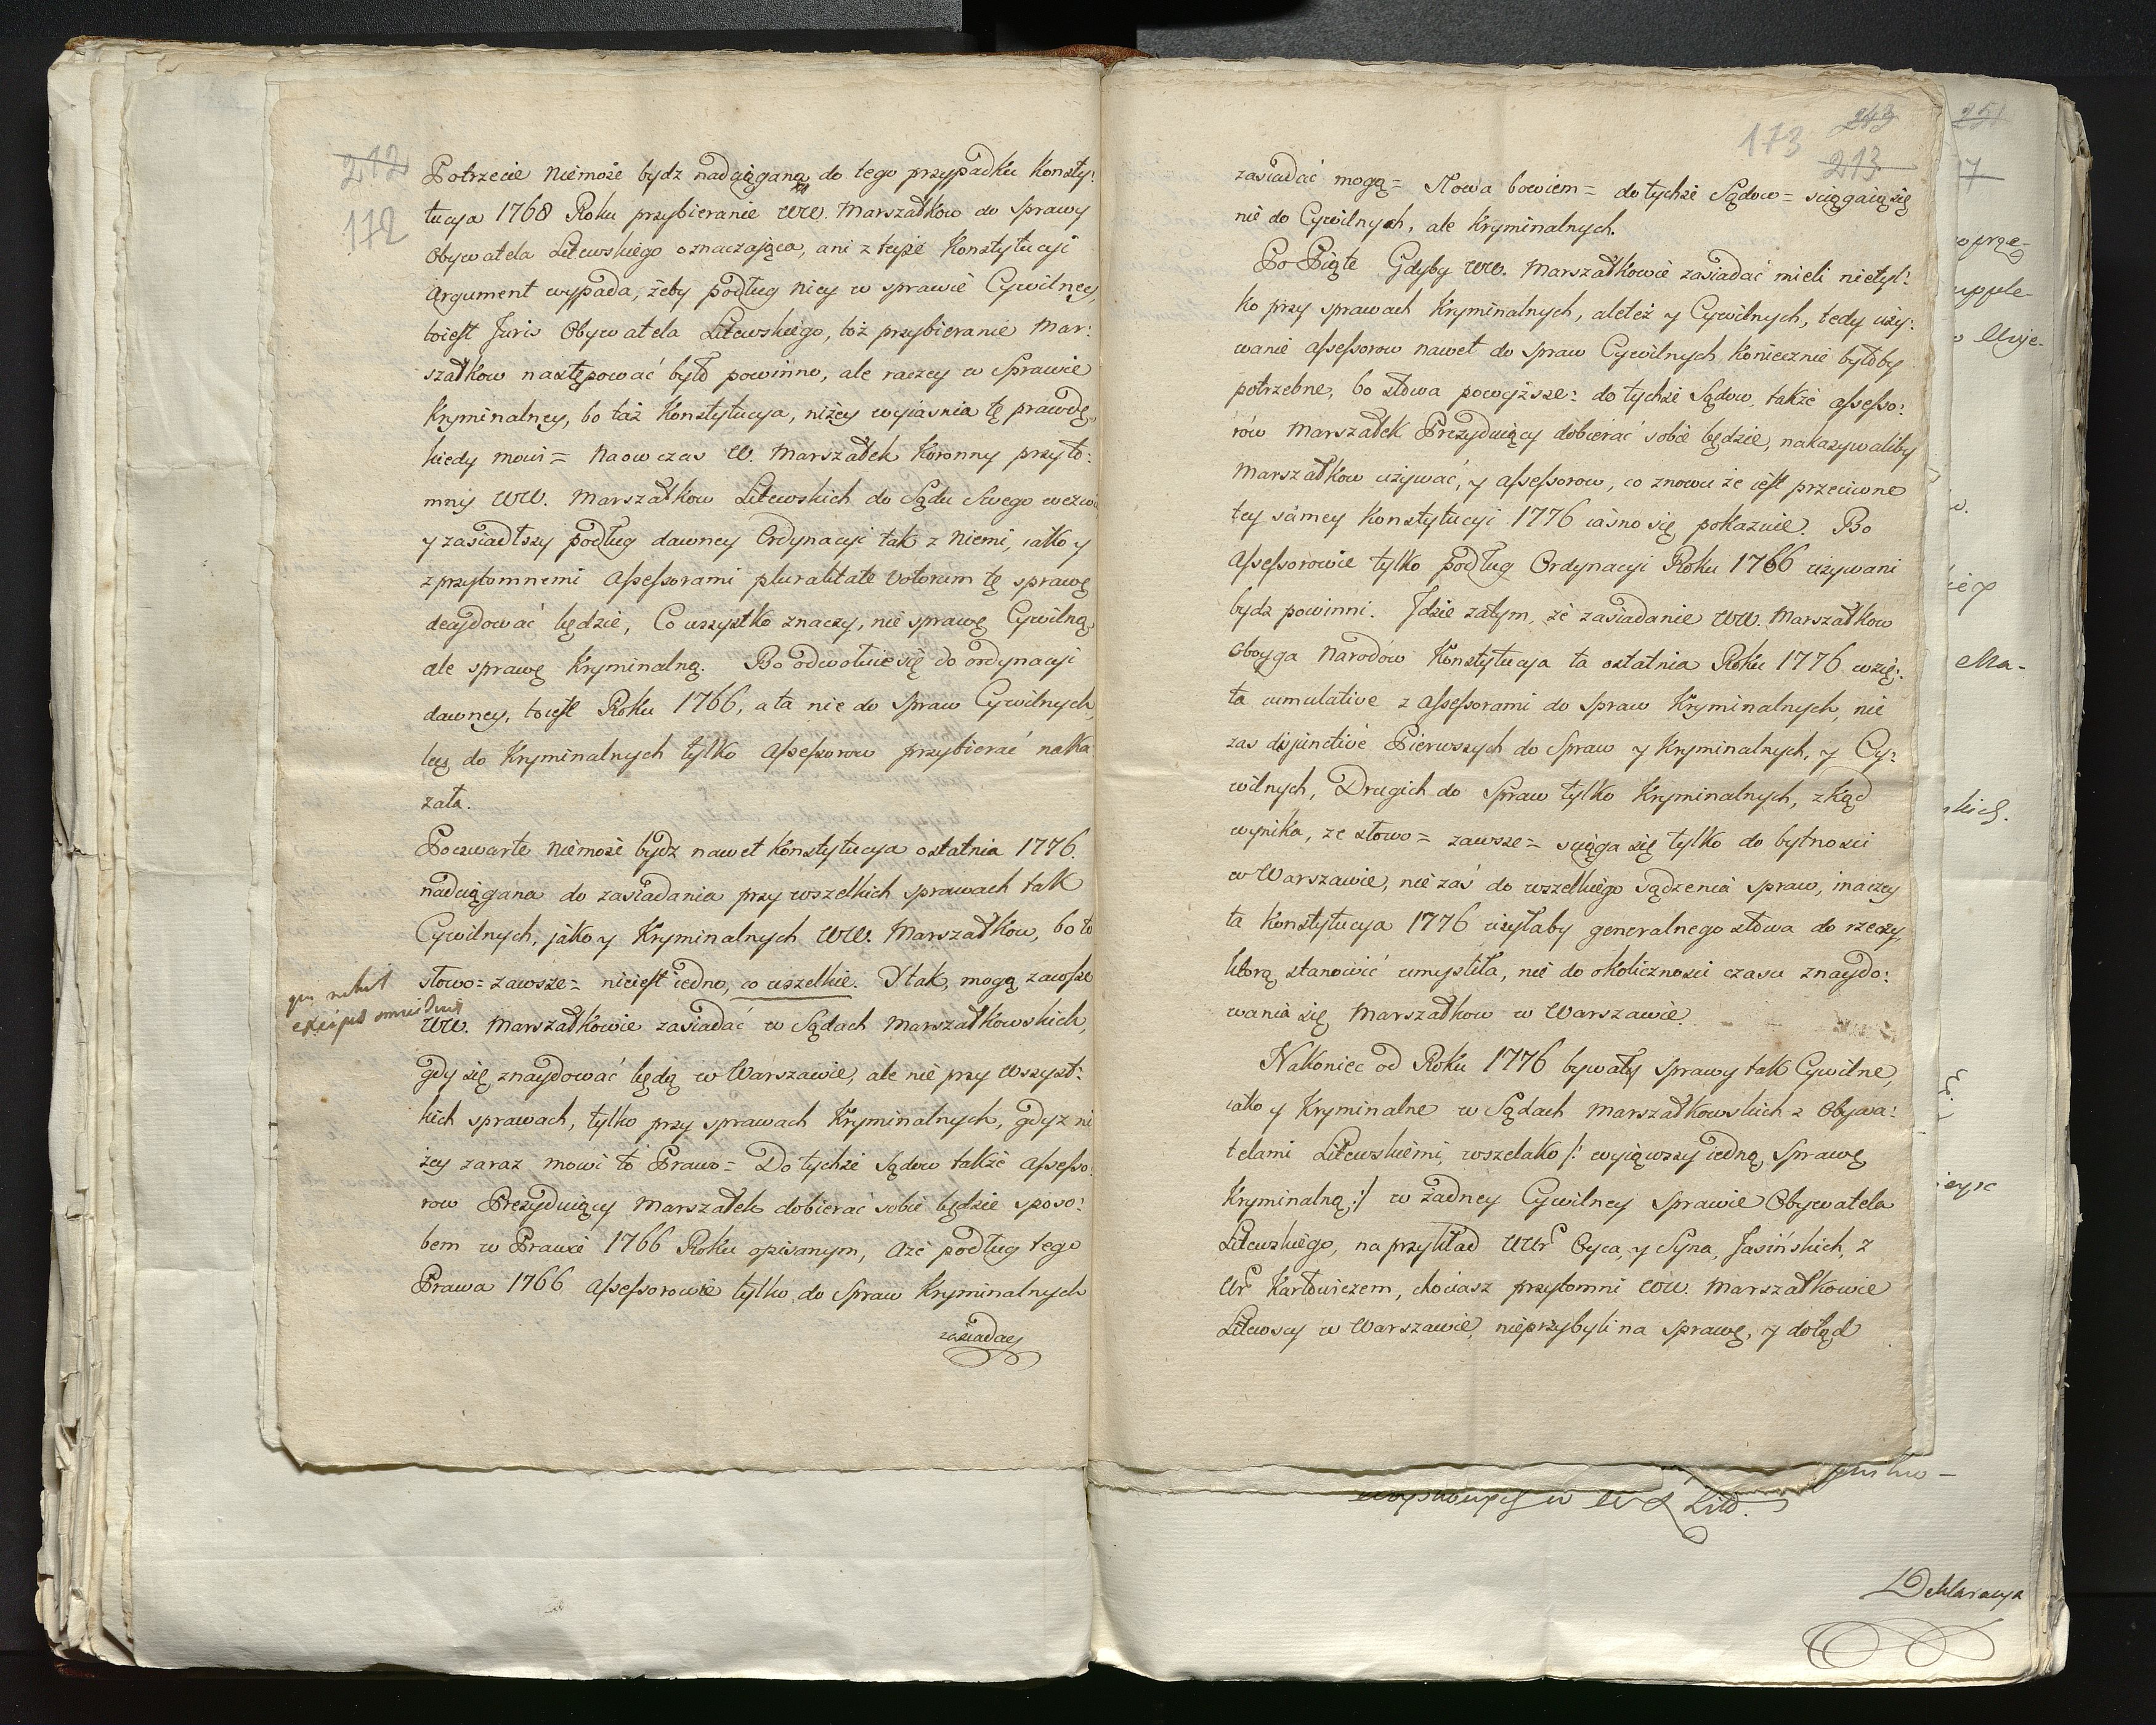 212
172
Potrzecie niemoże bydz nadciągana do tego przypadku Konsty:
tucya 1768 Roku przybieranie WW. Marszałkow do Sprawy
Obywatela Litewskiego oznaczaiąca, ani z teyże Konstytucyi
Argument wypada, żeby podług niey w sprawie Cywilney,
toiest Juris Obywatela Litewskiego, toż przybieranie Mar:
szałkow następować było powinno, ale raczey w Sprawie
Kryminalney, bo taż Konstytucya, niżey wyiasnia tę prawdę,
kiedy mowi = Naowczas W. Marszałek Koronny przyto:
mnych WW. Marszałkow Litewskich do Sądu Swego wezwie
y zasiadłszy podług dawney Ordynacyi tak z niemi, iako y
z przytomnemi Assessorami pluralitate Votorum tę sprawę
decydować będzie, Co wszystko znaczy, nie sprawę Cywilną,
ale sprawę Kryminalną. Bo odwołuie się do ordynacyi
dawney, toiest Roku 1766, a ta nie do Spraw Cywilnych,
lecz do Kryminalnych tylko Assessorow przybierać naka:
zała.
Poczwarte niemoże bydz nawet Konstytucya ostatnia 1776.
nadciągana do zasiadania przy wszelkich sprawach tak
Cywilnych, jako y Kryminalnych WW. Marszałkow, bo to
słowo = zawsze = nieiest iedno, co wszelkie. I tak, mogą zawsze
qui nihil
excipit omne
WW. Marszałkowie zasiadać w Sądach Marszałkowskich,
gdy się znaydować będą w Warszawie, ale nie przy wszyst:
kich sprawach, tylko przy sprawach Kryminalnych, gdyz ni
żey zaraz mowi to Prawo = Do tychże Sądow także Assesso:
row Prezyduiący Marszałek dobierać sobie będzie sposo:
bem w Prawie 1766 Roku opisanym, Aże podług tego
Prawa 1766 Assessorowie tylko do Spraw Kryminalnych
zasiadać
243
173
213
zasiadać mogą = Słowa bowiem = do tychże Sądow = sciągaią się
nie do Cywilnych, ale Kryminalnych.
Po Piąte Gdyby WW. Marszałkowie zasiadać mieli nietyl:
ko przy sprawach Kryminalnych, aleteż y Cywilnych, tedy uży:
wanie Assessorow nawet do Spraw Cywilnych koniecznie byłoby
potrzebne, bo słowa powyższe: do tychże Sądow, także Assesso:
rów Marszałek Prezyduiący dobierać sobie będzie, nakazywaliby
Marszałkow używać, y Assessorow, co znowu że iest przeciwne
tey sámey Konstytucyi 1776 iasno się pokazuie. Bo
Assessorowie tylko podług Ordynacyi Roku 1766 używani
bydz powinni. Idzie zatym, że zasiadanie WW. Marszałkow
Oboyga Narodów Konstytucya ta ostatnia Roku 1776 wzię:
ta cumulative z Assessorami do Spraw Kryminalnych, nie
zas disjunctive Pierwszych do Spraw y Kryminalnych, y Cy:
wilnych, Drugich do Spraw tylko Kryminalnych, zkąd
wynika, ze słowo = zawsze = sciąga się tylko do bytnosci
w Warszawie, nie zaś do wszelkiego sądzenia spraw, inaczey
ta Konstytucya 1776 użyłaby generalnego słowa do rzeczy,
ktorą stanowić umysliła, nie do okolicznosci czasu znaydo:
wania się Marszałkow w Warszawie.
Nakoniec od Roku 1776 bywały Sprawy tak Cywilne,
iako y Kryminalne w Sądach Marszałkowskich z Obywa:
telami Litewskiemi, wszelako /: wyiąwszy iedną, Sprawę
Kryminalną :/ w żadney Cywilney Sprawie Obywatela
Litewskiego, na przykład UUr Oyca, y Syna, Jasińskich, z
Ur Karłowiczem, chociasz przytomni WW. Marszałkowie
Litewscy w Warszawie, nieprzybyli na sprawę, y dotąd
Deklaracya